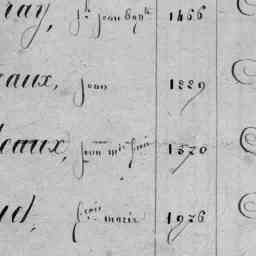 ray, Jh jean Bapte 1466
eaux, jean 1229
deaux, jean mie 1570
ud, frçois marie 1976